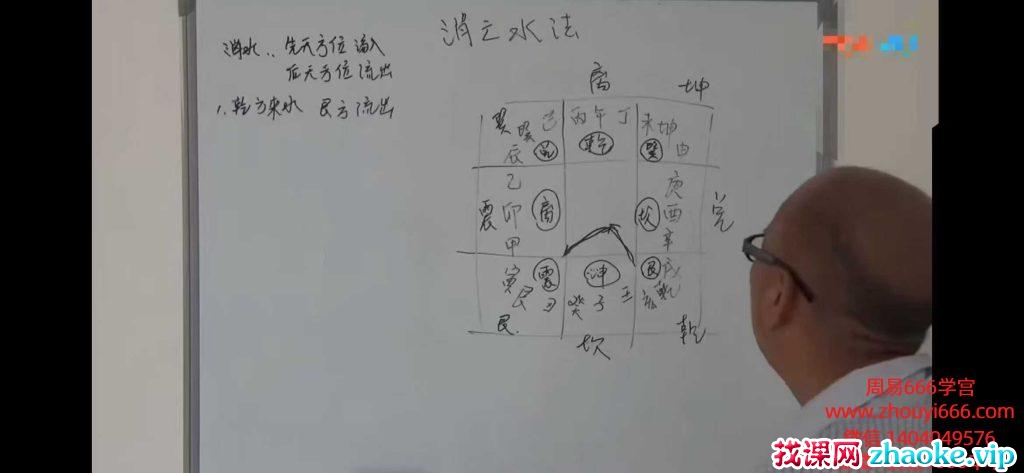 消亡水法
消水：先天方位流入
后天方位流出
1. 乾方来水 艮方流出
离 坤
巽 巽 巳 丙 午 丁 未 坤 申
辰 兑 乾 巽
乙 庚
震 卯 离 坎 酉 兑
甲 辛
寅 震 坤 艮 戌
艮 丑 癸 子 壬 亥 乾
艮 坎 乾
周易666学宫
www.zhouyi666.com
微信 1404049576
找课网 zhaoke.vip